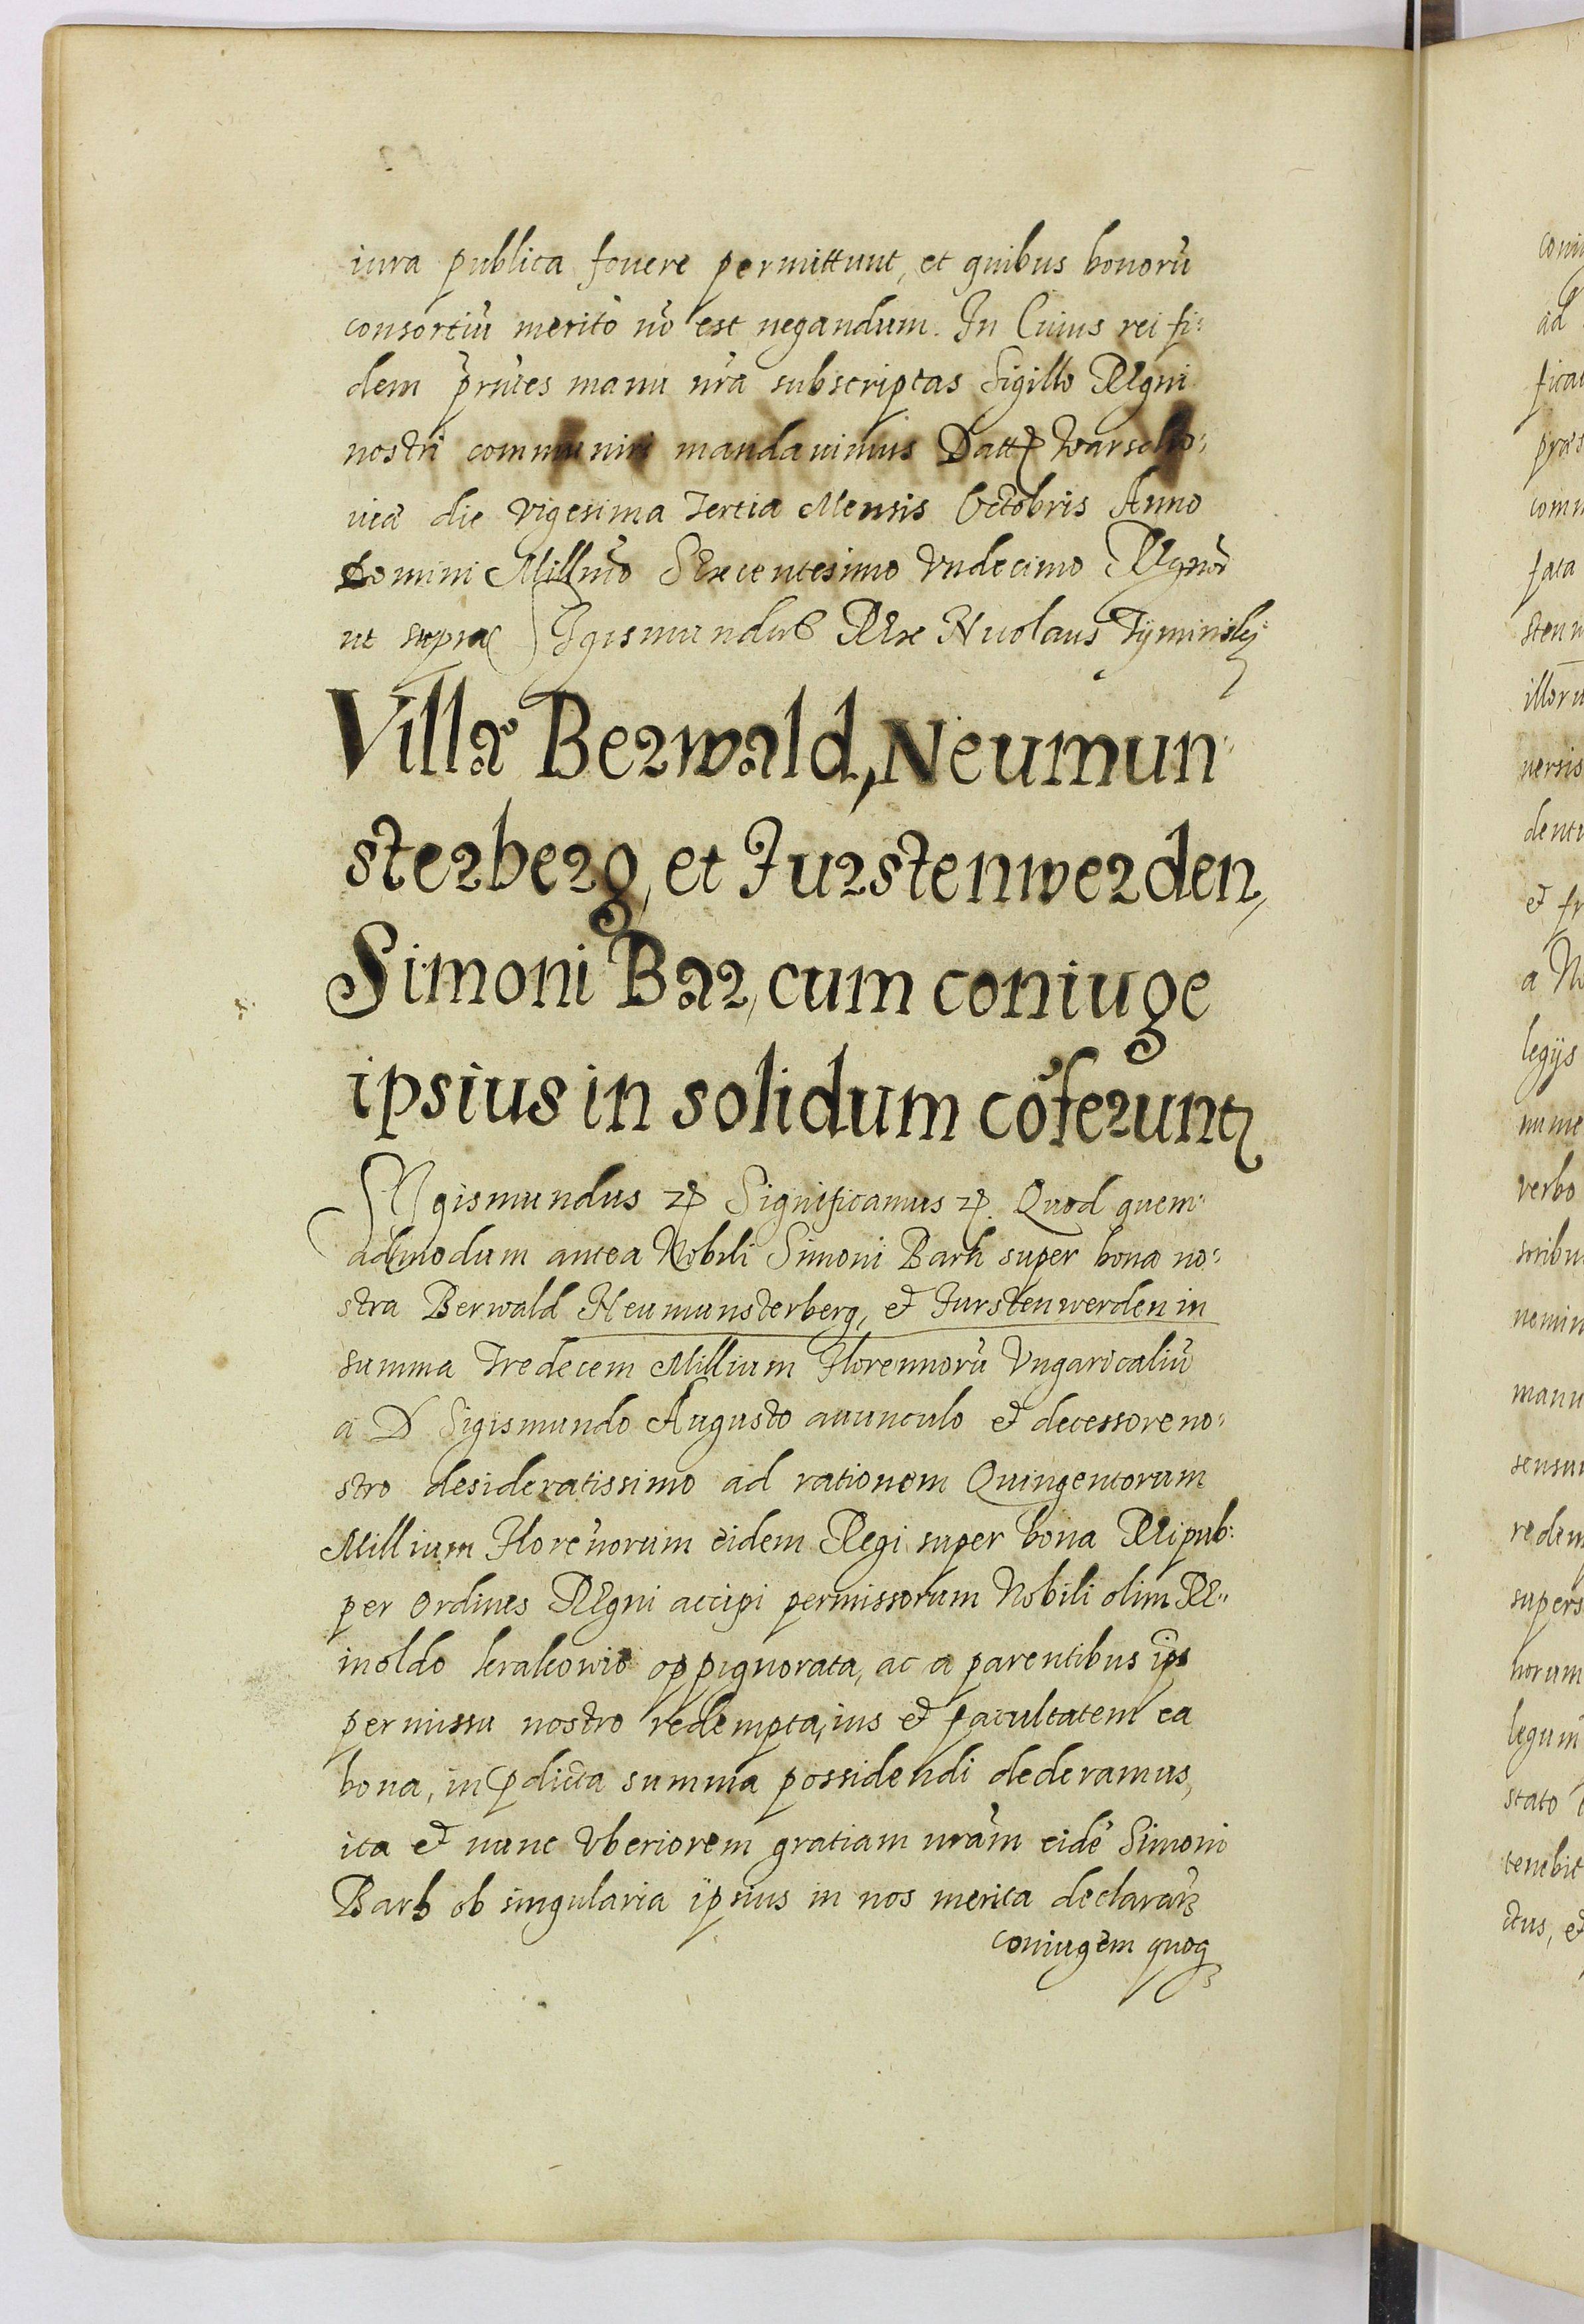 iura publica fovere permittunt, et quibus bonorũ
consortiũ merito nõ est negandum. In Cuius rei fi:
dem p̃ntes manu nr̃a subscriptas Sigillo Regni
nostri communiri mandavimus Datt Warscho:
viæ die Vigesima Tertia Mensis Octobris Anno
Domini Millmõ Sexcentesimo Undecimo Regnor̃
ut supra Sigismundus Rex Nicolaus Tyminsky
Villæ Berwald, Neumun
sterberg, et Furstenwerden,
Simoni Bar, cum coniuge
ipsius in solidum cõferunt
Sigismundus Significamus Quod quem:
admodum antea Nobili Simoni Barh super bona no:
stra Berwald Neumunsterberg, et Furstenwerden in
summa Tredecem Millium Florennorũ Ungaricaliũ
a D Sigismundo Augusto avunculo et decessore no:
stro desideratissimo ad rationem Quingentorum
Millium Florẽnorum eidem Regi super bona Reipub:
per Ordines Regni accipi permissorum Nobili olim Re:
inoldo krakowio oppignorata, ac a parentibus ips
permissu nostro redempta, ius et facultatem ea
bona, in pdicta summa possidendi dederamus,
ita et nunc Uberiorem gratiam nr̃am eidẽ Simoni
Barh ob singularia ipsius in nos merita declarar̃
coniugem quoq